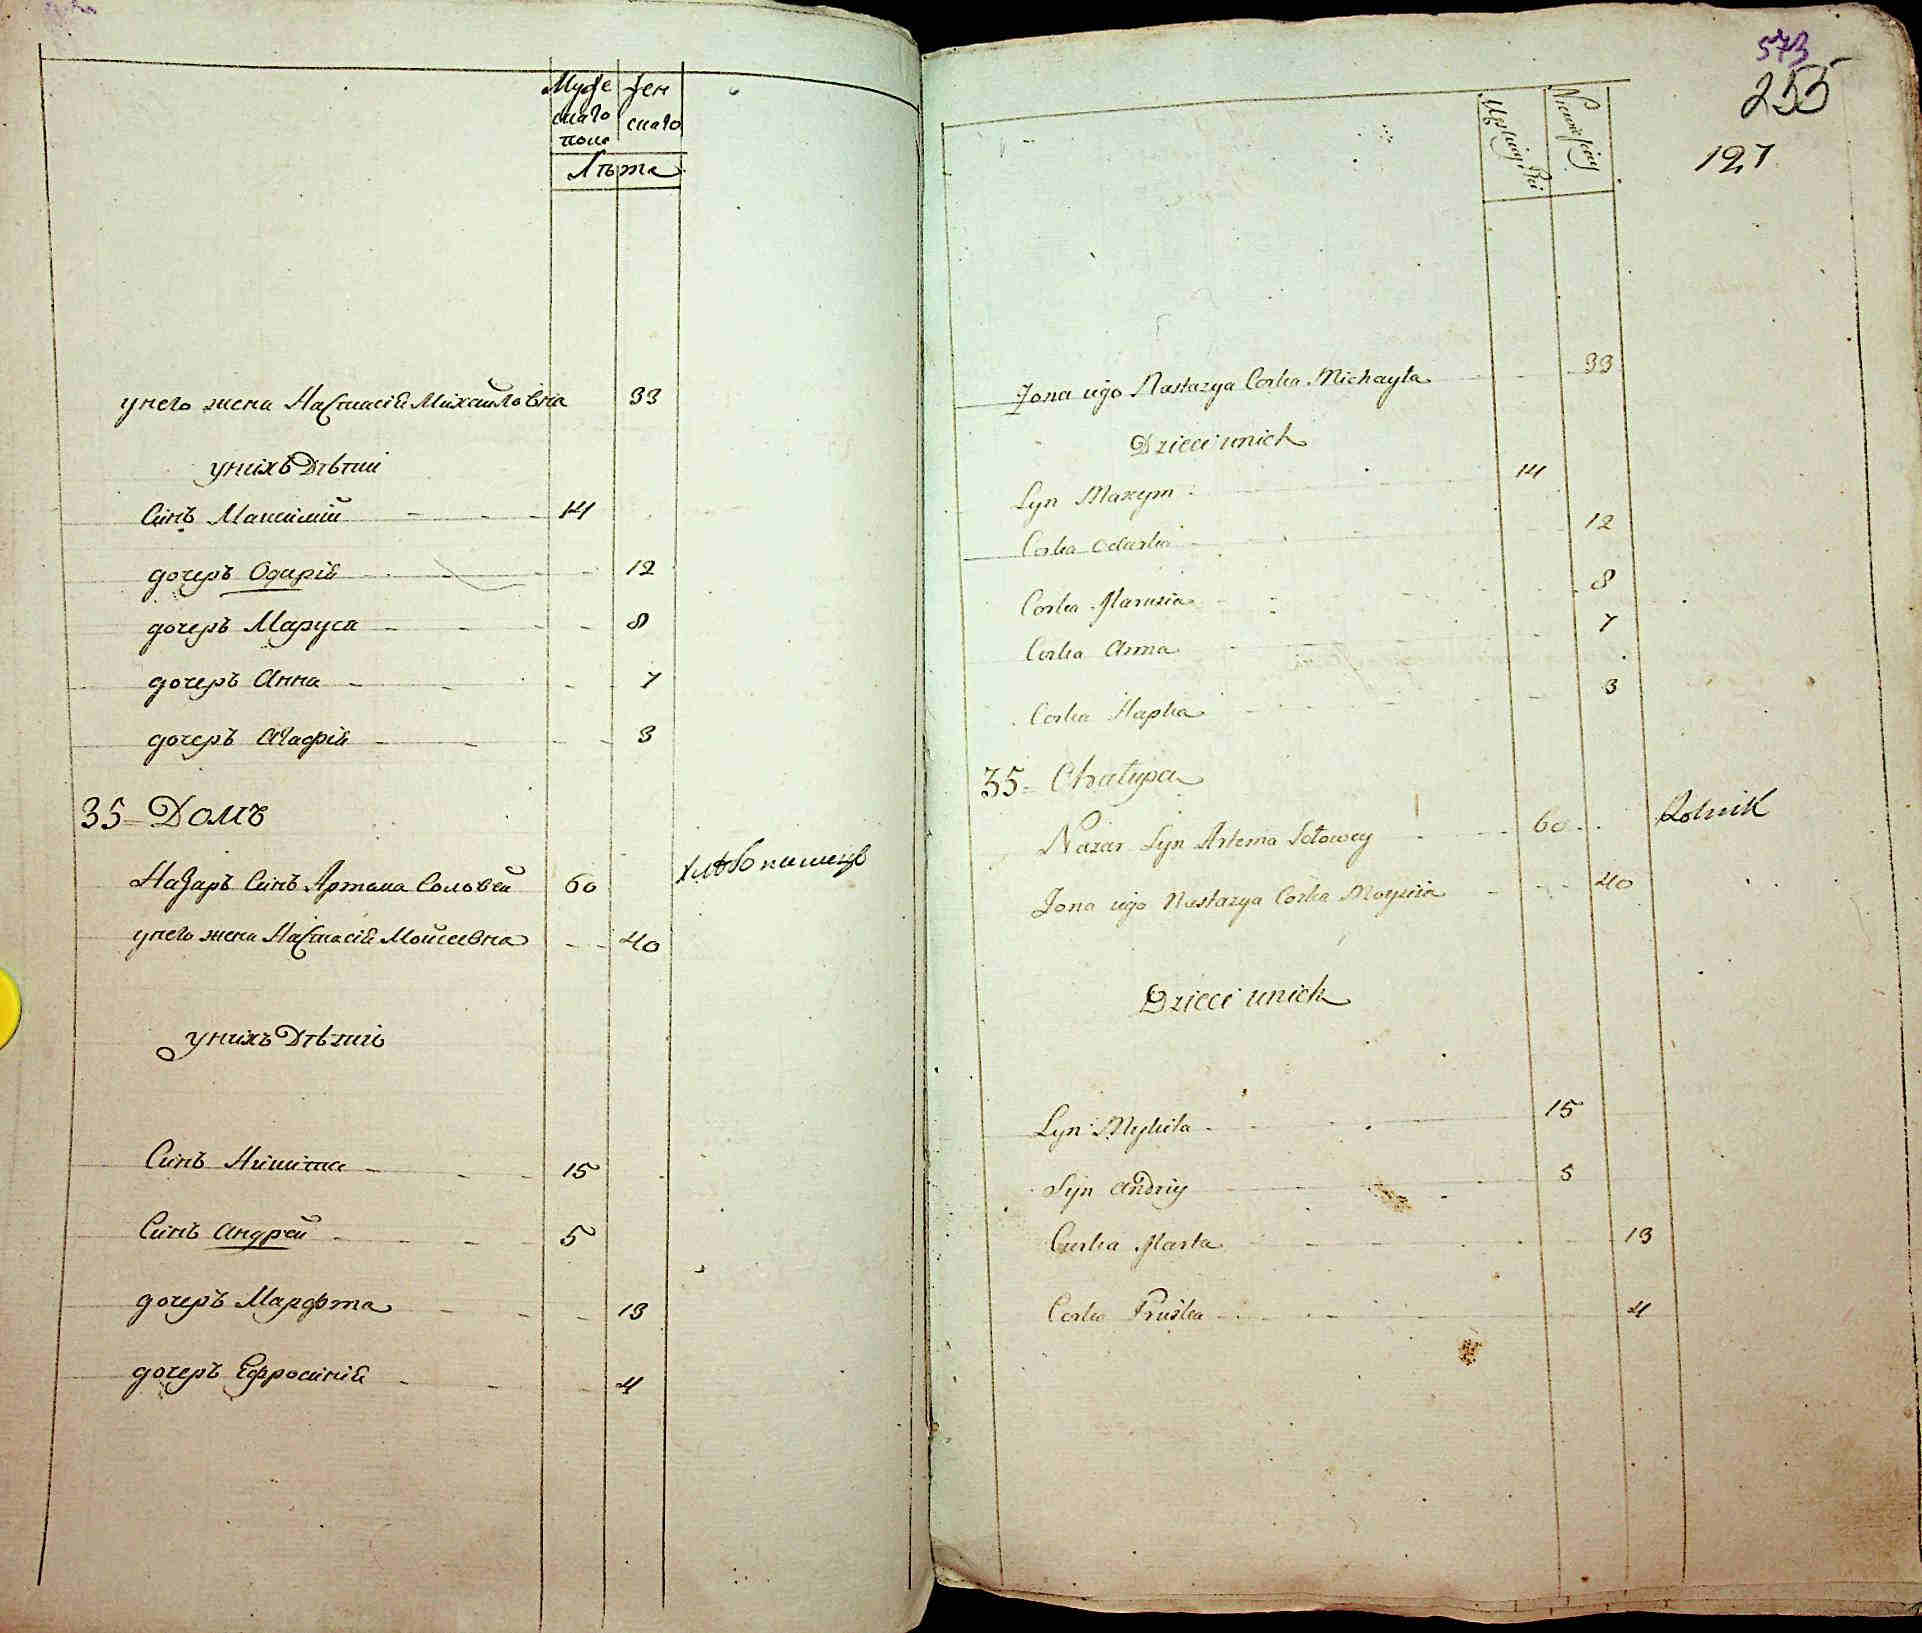 Муже
скаго
пола
жен
скаго
Лѣта
у него жена Настасія Михайловна 33
у нихъ Дѣти
Синъ Максимій 14
дочеръ Одарія 12
дочеръ Маруся 8
дочеръ Анна 7
дочеръ Агафія 3
35 Домъ
Назаръ Синъ Артема Соловей 60 хлѣбопашецъ
у него жена Настасія Мойсеевна 40
у нихъ Дѣти
Синъ Никита 15
Синъ Андрей 5
дочеръ Марфта 13
дочеръ Ефросинія 4
573
255
127
Żona iego Nastazya Corka Michayła 33
Dzieci u nich
Syn Maxym 14
Corka Odarka 12
Corka Marusia 8
Corka Anna 7
Corka Hapka 3
35 Chałupa
Nazar Syn Artema Sołowey 60 Rolnik
Żona iego Nastazya Corka Moysiia 40
Dzieci u nich
Syn Mykita 15
Syn Andriy 5
Corka Marta 13
Corka Pruśka 4